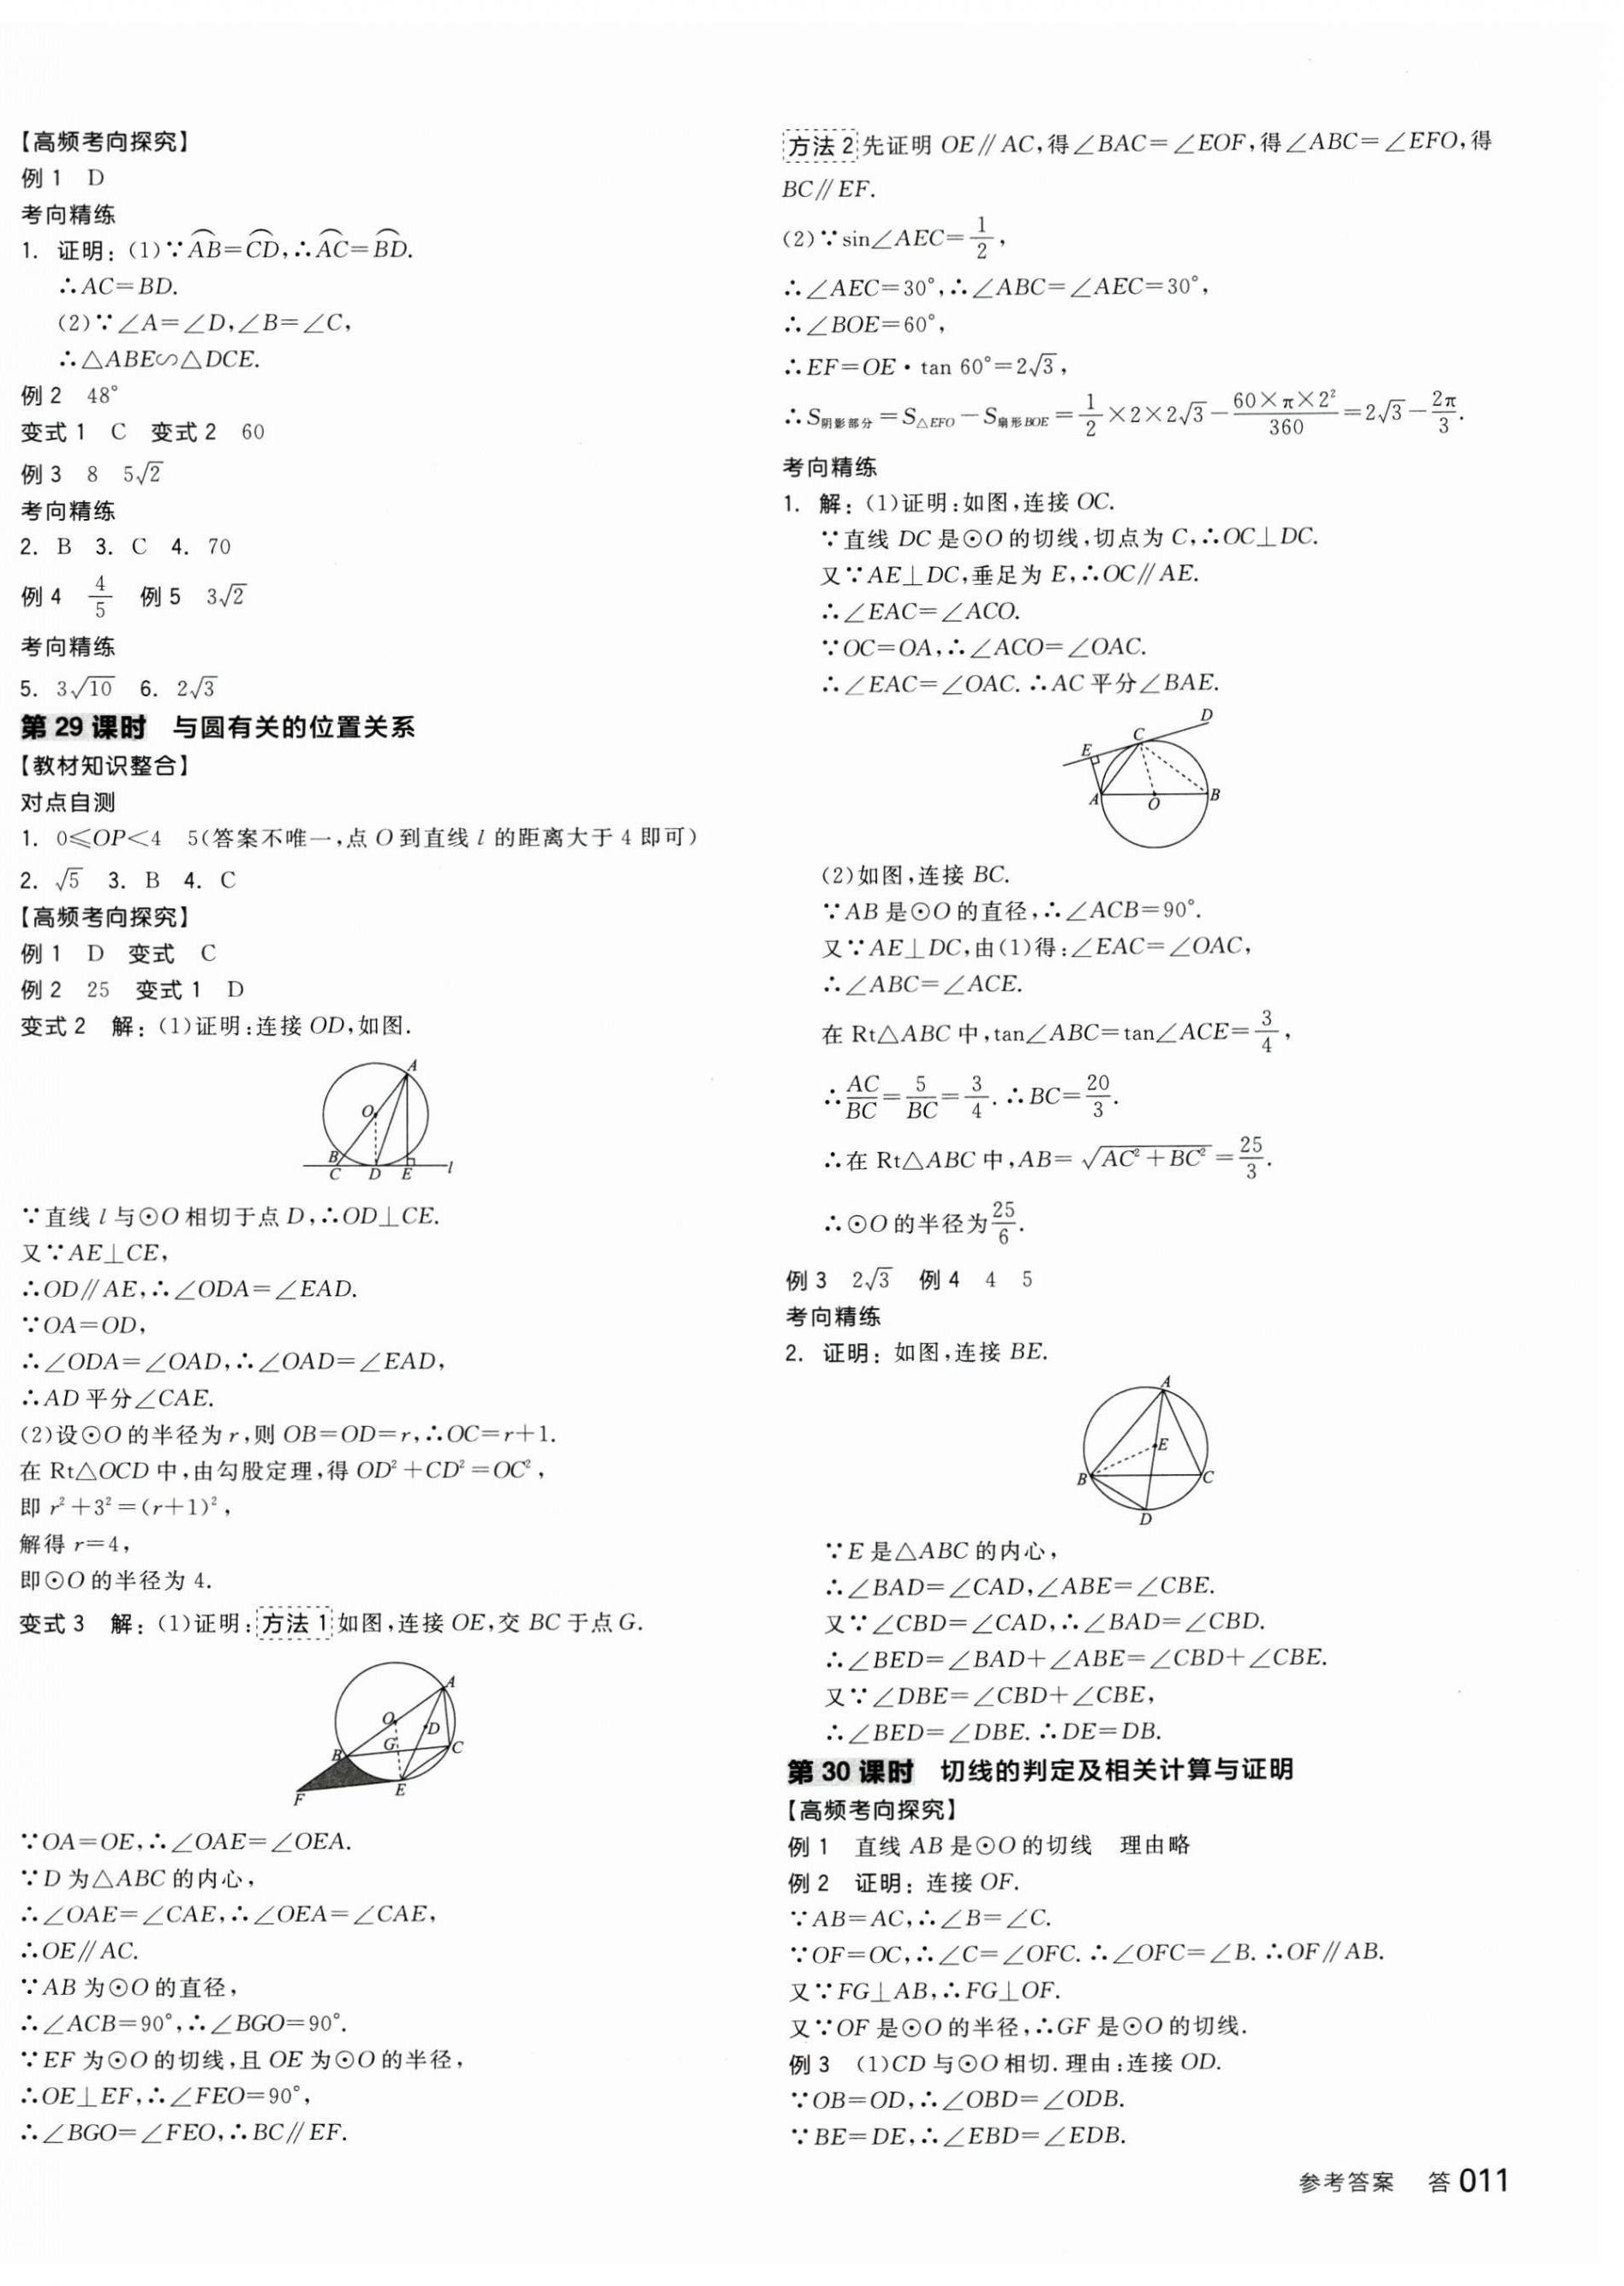 【高频考向探究】
例1 D
考向精练
1. 证明：(1)∵⌒AB=⌒CD,∴⌒AC=⌒BD.
∴AC=BD.
(2)∵∠A=∠D,∠B=∠C,
∴△ABE∽△DCE.
例2 48°
变式1 C 变式2 60
例3 8 5√2
考向精练
2. B 3. C 4. 70
例4 4/5 例5 3√2
考向精练
5. 3√10 6. 2√3
第29课时 与圆有关的位置关系
【教材知识整合】
对点自测
1. 0≤OP<4 5(答案不唯一,点O到直线l的距离大于4即可)
2. √5 3. B 4. C
【高频考向探究】
例1 D 变式 C
例2 25 变式1 D
变式2 解：(1)证明:连接OD,如图.
A
O
B
C D E l
∵直线l与⊙O相切于点D,∴OD⊥CE.
又∵AE⊥CE,
∴OD∥AE,∴∠ODA=∠EAD.
∵OA=OD,
∴∠ODA=∠OAD,∴∠OAD=∠EAD,
∴AD平分∠CAE.
(2)设⊙O的半径为r,则OB=OD=r,∴OC=r+1.
在Rt△OCD中,由勾股定理,得OD²+CD²=OC²,
即r²+3²=(r+1)²,
解得r=4,
即⊙O的半径为4.
变式3 解：(1)证明:方法1如图,连接OE,交BC于点G.
A
O D
G
B C
E
F
∵OA=OE,∴∠OAE=∠OEA.
∵D为△ABC的内心,
∴∠OAE=∠CAE,∴∠OEA=∠CAE,
∴OE∥AC.
∵AB为⊙O的直径,
∴∠ACB=90°,∴∠BGO=90°.
∵EF为⊙O的切线,且OE为⊙O的半径,
∴OE⊥EF,∴∠FEO=90°,
∴∠BGO=∠FEO,∴BC∥EF.
方法2先证明OE∥AC,得∠BAC=∠EOF,得∠ABC=∠EFO,得
BC∥EF.
(2)∵sin∠AEC=1/2,
∴∠AEC=30°,∴∠ABC=∠AEC=30°,
∴∠BOE=60°,
∴EF=OE·tan 60°=2√3,
∴S阴影部分=S△EFO-S扇形BOE=1/2×2×2√3-(60×π×2²)/360=2√3-2π/3.
考向精练
1. 解：(1)证明:如图,连接OC.
∵直线DC是⊙O的切线,切点为C,∴OC⊥DC.
又∵AE⊥DC,垂足为E,∴OC∥AE.
∴∠EAC=∠ACO.
∵OC=OA,∴∠ACO=∠OAC.
∴∠EAC=∠OAC.∴AC平分∠BAE.
D
C
E
A O B
(2)如图,连接BC.
∵AB是⊙O的直径,∴∠ACB=90°.
又∵AE⊥DC,由(1)得:∠EAC=∠OAC,
∴∠ABC=∠ACE.
在Rt△ABC中,tan∠ABC=tan∠ACE=3/4,
∴AC/BC=5/BC=3/4.∴BC=20/3.
∴在Rt△ABC中,AB=√(AC²+BC²)=25/3.
∴⊙O的半径为25/6.
例3 2√3 例4 4 5
考向精练
2. 证明：如图,连接BE.
A
E
B C
D
∵E是△ABC的内心,
∴∠BAD=∠CAD,∠ABE=∠CBE.
又∵∠CBD=∠CAD,∴∠BAD=∠CBD.
∴∠BED=∠BAD+∠ABE=∠CBD+∠CBE.
又∵∠DBE=∠CBD+∠CBE,
∴∠BED=∠DBE.∴DE=DB.
第30课时 切线的判定及相关计算与证明
【高频考向探究】
例1 直线AB是⊙O的切线 理由略
例2 证明：连接OF.
∵AB=AC,∴∠B=∠C.
∵OF=OC,∴∠C=∠OFC.∴∠OFC=∠B.∴OF∥AB.
又∵FG⊥AB,∴FG⊥OF.
又∵OF是⊙O的半径,∴GF是⊙O的切线.
例3 (1)CD与⊙O相切.理由:连接OD.
∵OB=OD,∴∠OBD=∠ODB.
∵BE=DE,∴∠EBD=∠EDB.
参考答案 答011